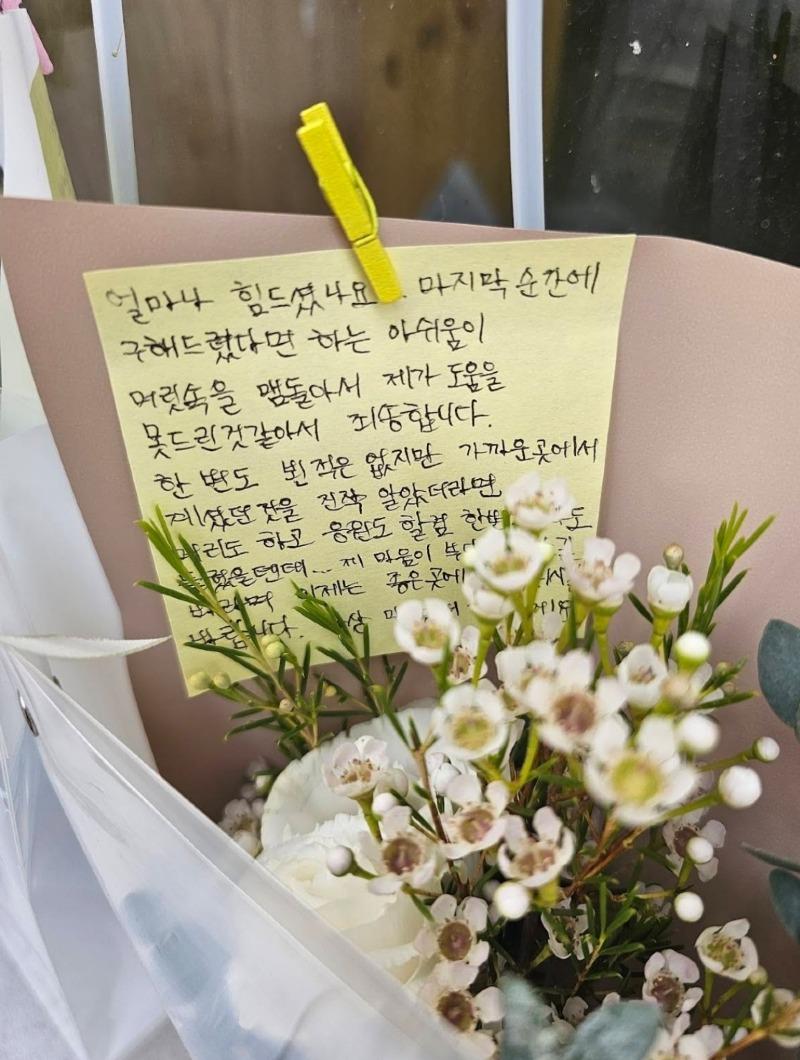 얼마나 힘드셨나요.. 마지막 순간에
구해드렸다면 하는 아쉬움이
머릿속을 맴돌아서 제가 도움을
못드린것같아서 죄송합니다.
한 번도 뵌 적은 없지만 가까운곳에서
계셨던것을 진작 알았더라면
하고 응원도 할겸 한번
제 마음이
이제는 좋은곳에
바랍니다.